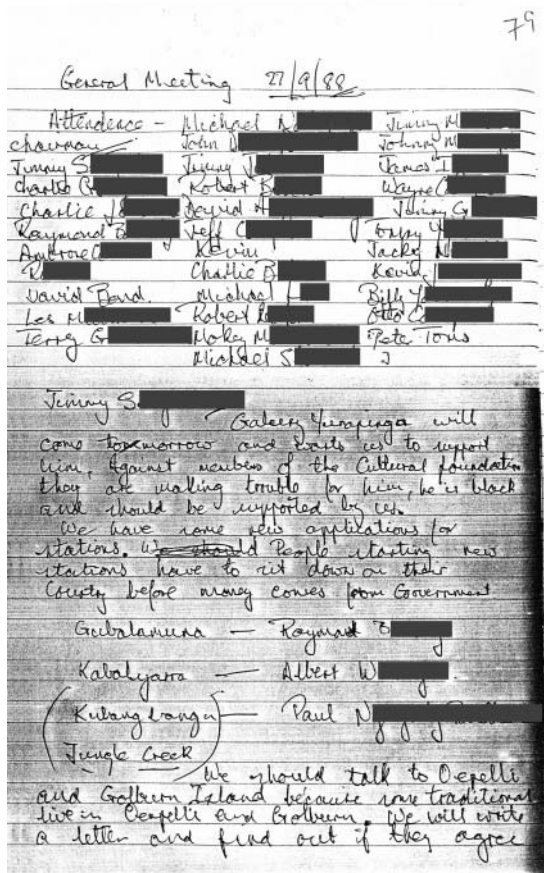 79
General Meeting 27/9/88
Attendence - Michael Jimmy M
chairman John Johnny M
Jimmy S. Jimmy James
Charlie Robert Wayne
Charlie David Jimmy G
Raymond B Jeff C
Ambrose Kevin Jacky
Charlie B. Kevin
David Bond. Michael Billy
Les M Robert Otto C
Terry G Mokey M Pete Toms
Michael S
Jimmy S.
Galerry Yunupinga will
come tomorrow and wants us to support
him, Against members of the Cultural foundation
they are making trouble for him, he is black
and should be supported by us.
We have some new applications for
stations. We should People starting new
stations have to sit down on their
County before money comes from Government
Gubalamuna - Raymond B
Kabalyarra - Albert W
Kubangbangu - Paul N
Jungle Creek
We should talk to Oepelli
and Golburn Island because some traditional
live in Oenpelli and Golburn. We will write
a letter and find out if they agree